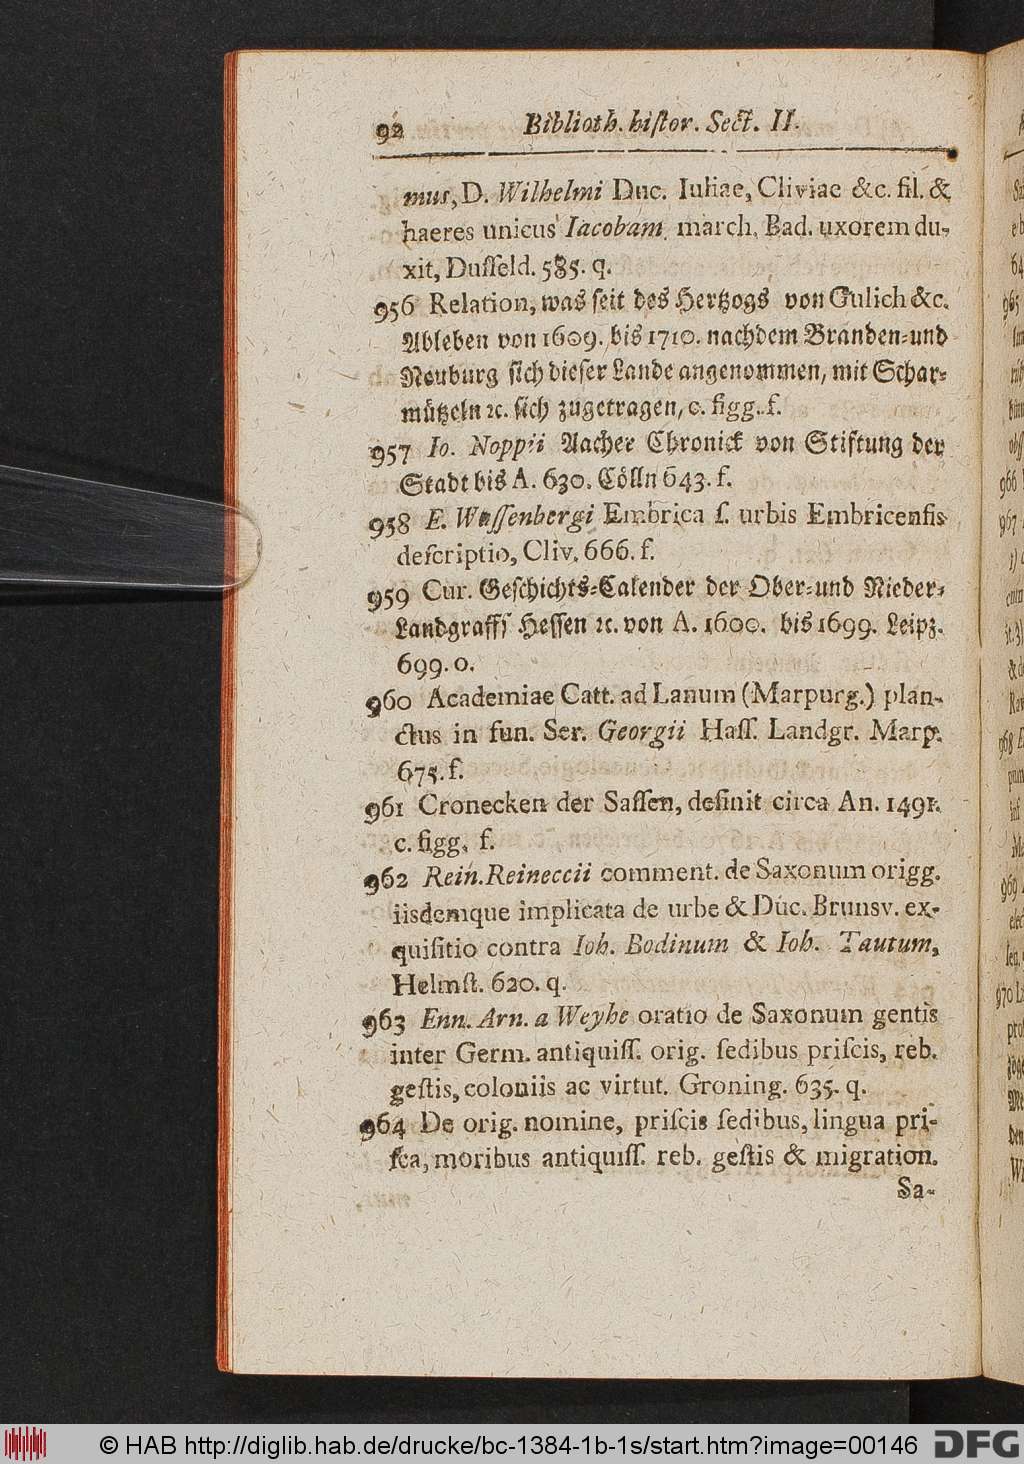 92 Biblioth. histor. Sect. II.
mus, D. Wilhelmi Duc. Iuliae, Cliviae &c. fil. &
haeres unicus Iacobam march. Bad. uxorem du-
xit, Dusſeld. 585. q.
956 Relation, was ſeit des Hertzogs von Gulich &c.
Ableben von 1609. bis 1710. nachdem Branden-und
Neuburg ſich dieſer Lande angenommen, mit Schar-
mützeln ꝛc. ſich zugetragen, c. figg. f.
957 Io. Noppii Aacher Chronick von Stiftung der
Stadt bis A. 630. Cölln 643. f.
958 E. Waſſenbergi Embrica ſ. urbis Embricenſis
deſcriptio, Cliv. 666. f.
959 Cur. Geſchichts-Calender der Ober-und Nieder-
Landgraffſ Heſſen ꝛc. von A. 1600. bis 1699. Leipz.
699. o.
960 Academiae Catt. ad Lanum (Marpurg.) plan-
ctus in fun. Ser. Georgii Haſſ. Landgr. Marp.
675. f.
961 Cronecken der Saſſen, deſinit circa An. 1491.
c. figg. f.
962 Rein. Reineccii comment. de Saxonum origg.
iisdemque implicata de urbe & Duc. Brunsv. ex-
quiſitio contra Ioh. Bodinum & Ioh. Tautum,
Helmſt. 620. q.
963 Enn. Arn. a Weyhe oratio de Saxonum gentis
inter Germ. antiquiſſ. orig. ſedibus priſcis, reb.
geſtis, coloniis ac virtut. Groning. 635. q.
964 De orig. nomine, priſcis ſedibus, lingua pri-
ſca, moribus antiquiſſ. reb. geſtis & migration.
Sa-
© HAB http://diglib.hab.de/drucke/bc-1384-1b-1s/start.htm?image=00146
DFG